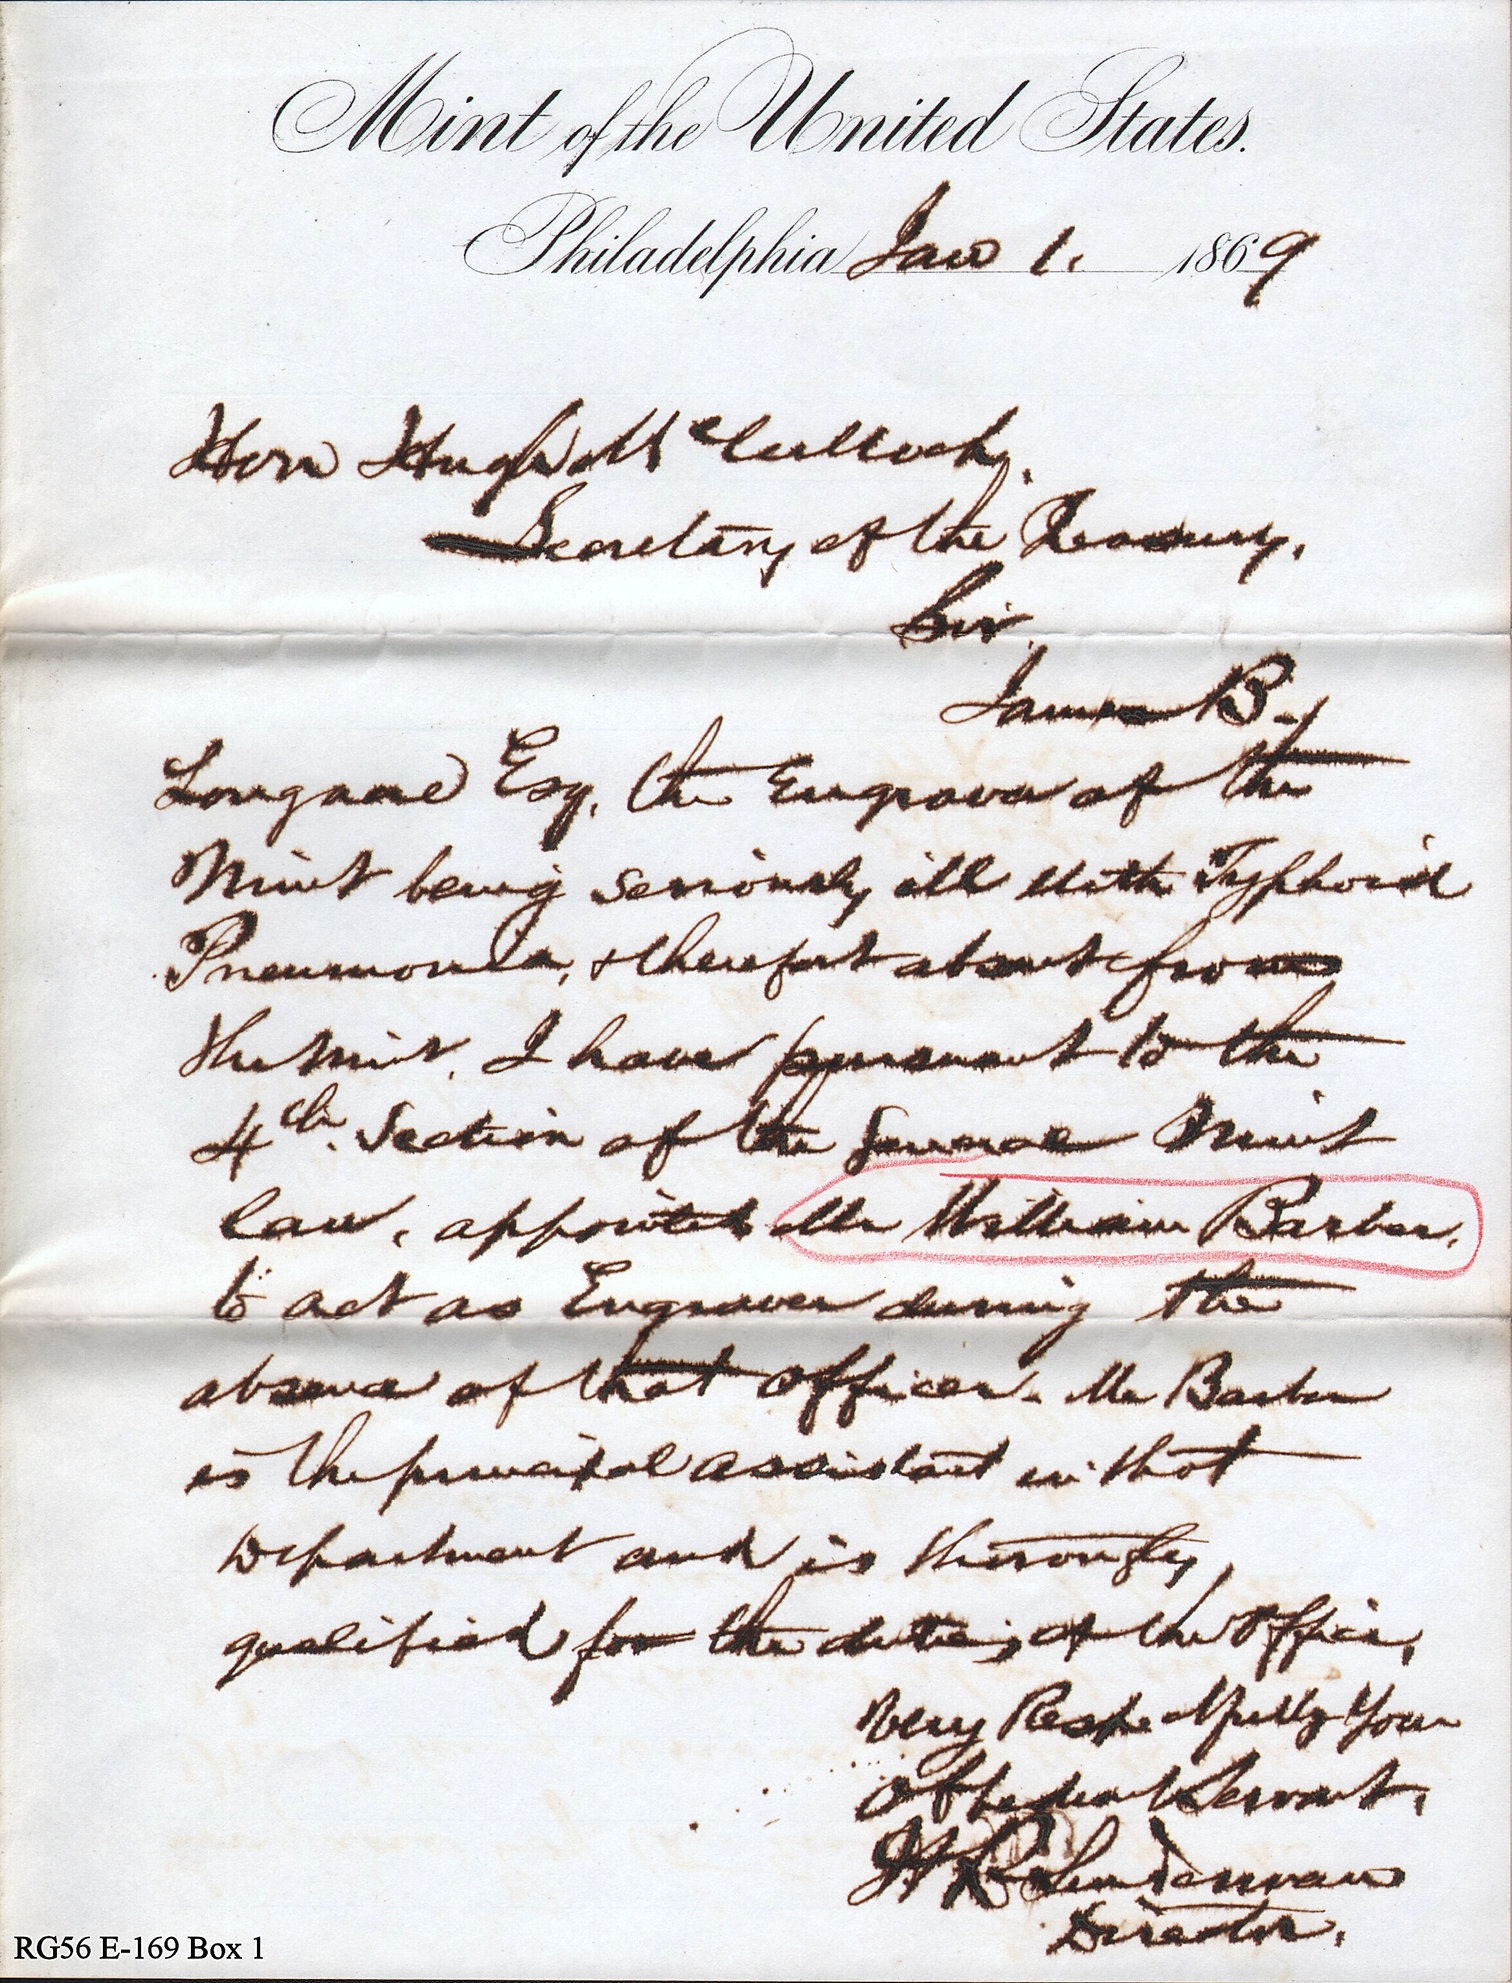 Mint of the United States.
Philadelphia Jan 1. 1869
Hon Hugh McCulloch,
Secretary of the Treasury,
Sir,
James B.
Longacre Esq. the Engraver of the
Mint being seriously ill with Typhoid
Pneumonia, & therefore absent from
the Mint. I have pursuant to the
4th. Section of the General Mint
law, appointed Mr William Barber,
to act as Engraver during the
absence of that officer. Mr Barber
is the principal assistant in that
Department and is thoroughly
qualified for the duties of the office,
Very Respectfully Your
Obedient Servant,
H R Linderman
Director.
RG56 E-169 Box 1